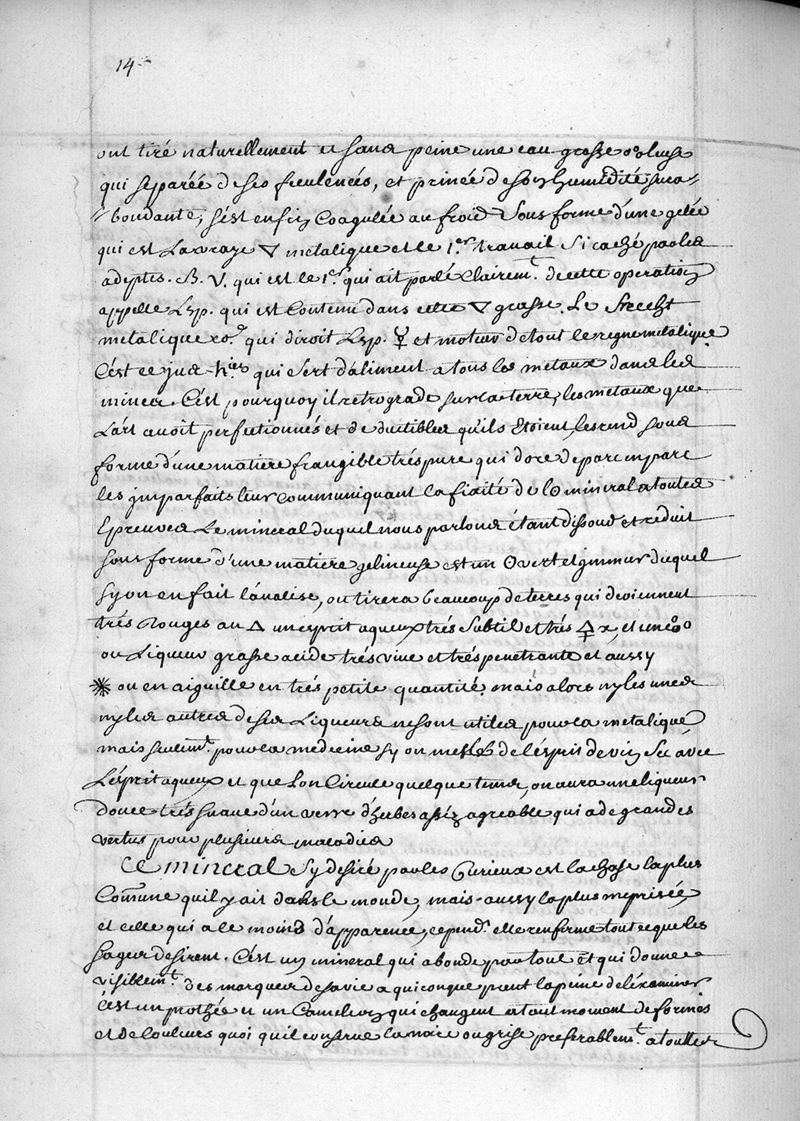 14
ont tiré naturellement et sans peine une eau grasse
qui separée de ses feculences, et privée de son humidité sura-
-bondante, s'est enfin Coagulée au froid Sous forme d'une gelée
qui est La vraye 🜄 metalique et le 1.er travail Si caché par les
adeptes. B. V. qui est le 1.er qui ait parlé clairem.t de cette operation
appelle L'esp. qui est Contenu dans cette 🜄 grasse. Le
metalique qui diroit L'esp. ☿ et moteur de tout le regne metalique
C'est ce jus qui Sert d'aliment a tous les metaux dans les
mines. C'est pourquoy il retrograde sur la terre, les metaux que
L'art avoit perfectionnés et de ductibles qu'ils Etoient, les rend sous
forme d'une matiere frangible très pure qui dore de part en part
les jmparfaits leur communiquant la fixité de l'☉ mineral a toutes
Epreuves Le mineral duquel nous parlons étant dissoud et reduit
sous forme d'une matiere gelineuse est un Overt duquel
Sy on en fait l'analise, on tirera beaucoup de terres qui deviennent
très Rouges au 🜂 un esprit aqueux très Subtil et très et une
ou Liqueur grasse acide très vive et très penetrante et aussy
✳ ou en aiguille en très petite quantité. mais alors ny les unes
ny les autres de ses Liqueurs ne sont utiles pour la metalique
mais seulem.t pour la medecine sy on mesle de l'esprit de vin Sec avec
L'esprit aqueux et que L'on Circule quelque tems, on aura une liqueur
douce très suave d'un verre d'herbes assez agreable qui a de grandes
vertus pour plusieurs maladies
Ce mineral Sy desiré par les Curieux est la chose la plus
Commune qu'il y ait dans le monde, mais aussy la plus meprisée,
et celle qui a le moins d'apparence, cepend.t elle renferme tout ce que les
sages desirent. C'est un mineral qui abonde par tout et qui donne
visiblem.t des marques de sa vie a quiconque prent la peine de l'examiner
C'est un prothée et un Cameleon qui changent a tout moment de formes
et de Couleurs quoi qu'il conserve la noire ou grise preferablem.t a toutes